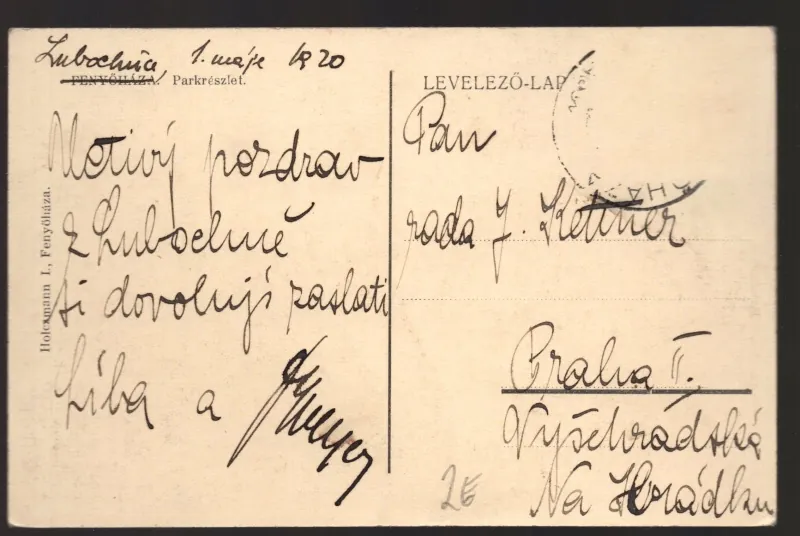 Lubochňa, 1. máje 1920
FENYŐHÁZA. Parkrészlet.
LEVELEZŐ-LAP
Uctivý pozdrav
z Lubochně
si dovolují zaslati
Líba a
Pan
rada J. Kettner
Praha II.
Vyšehradská
Na Hrádku
Holczmann I., Fenyőháza.
2E